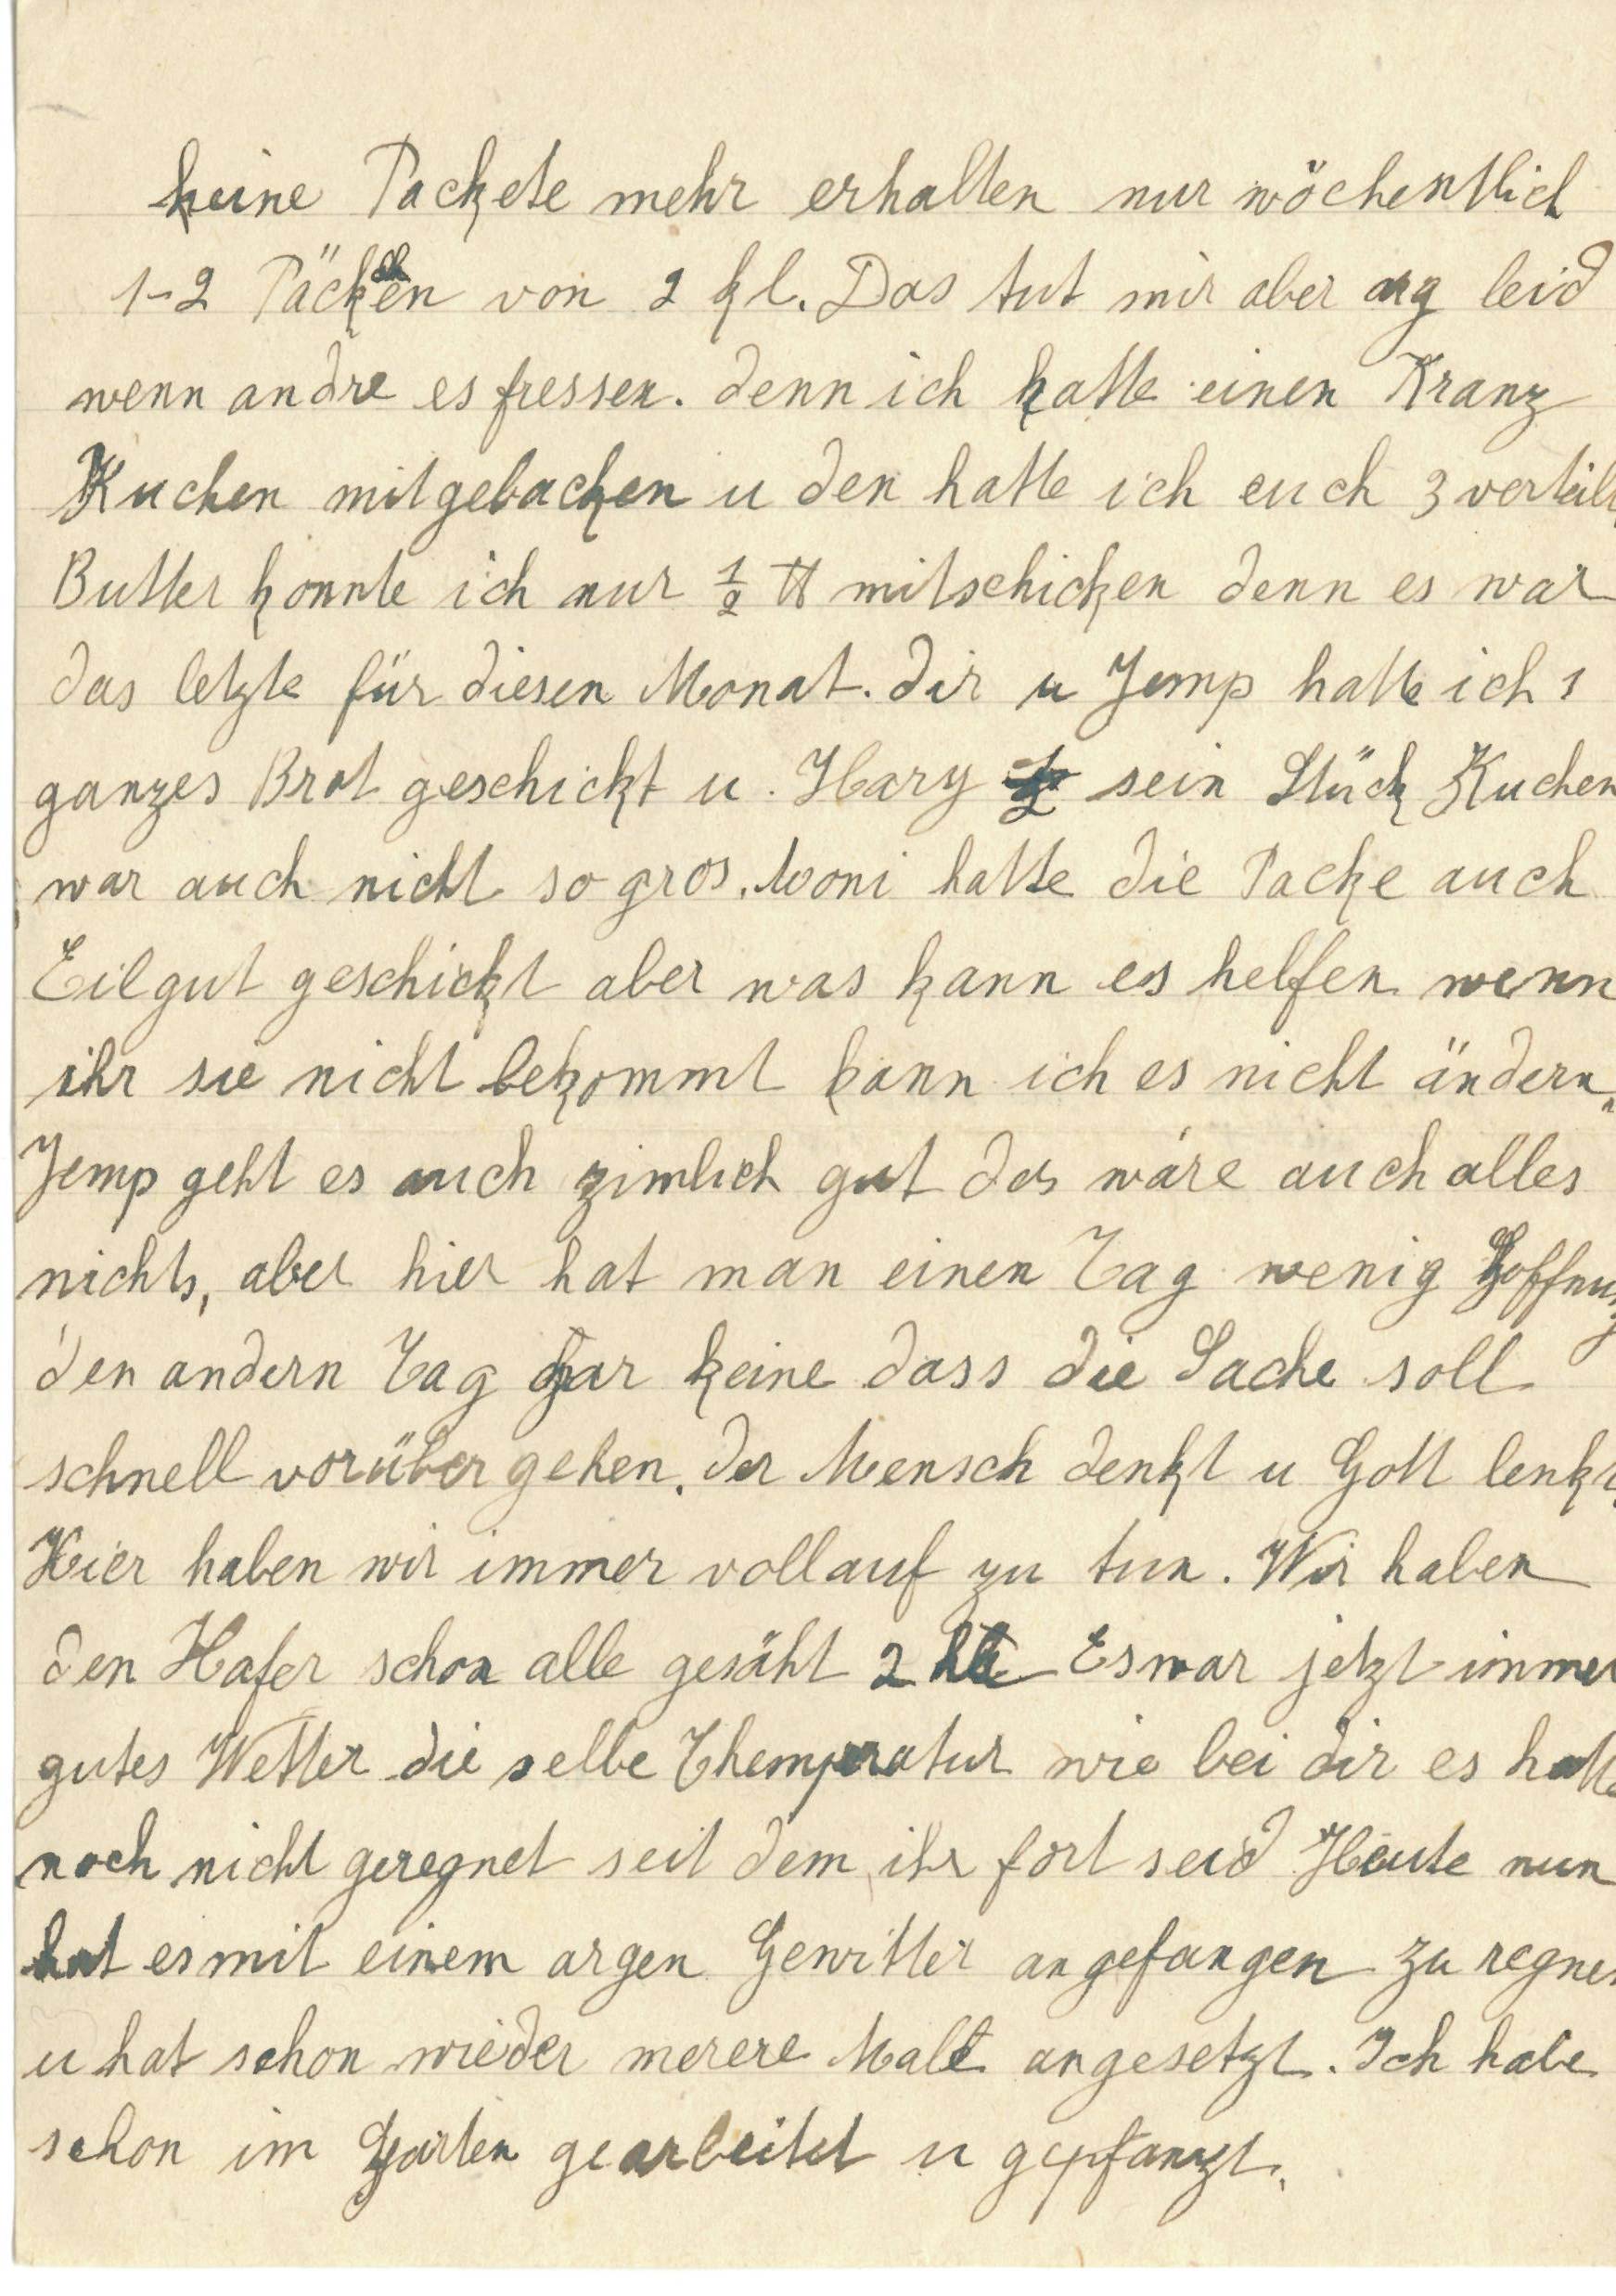 keine Packete mehr erhalten nur wöchentlich
1-2 Päckchen von 2 kl. Das tut mir aber arg leid
wenn andre es fressen. denn ich hatte einen Kranz
Kuchen mitgebacken u den hatte ich euch 3 verteilt
Butter konnte ich nur ½ ℔ mitschicken denn es war
das letzte für diesen Monat. dir u Jemp hatte ich 1
ganzes Brot geschickt u. Hary sein Stück Kuchen
war auch nicht so gros. Moni hatte die Packe auch
Eilgut geschickt aber was kann es helfen wenn
ihr sie nicht bekommt kann ich es nicht ändern.
Jemp geht es auch zimlich gut das wäre auch alles
nichts, aber hier hat man einen Tag wenig Hoffnung
den andern Tag gar keine dass die Sache soll
schnell vorüber gehen. der Mensch denkt u Gott lenkt.
Hier haben wir immer vollauf zu tun. Wir haben
den Hafer schon alle gesäht 2 Es war jetzt immer
gutes Wetter die selbe Themperatur wie bei dir es hatte
noch nicht geregnet seit dem ihr fort seid Heute nun
hat es mit einem argen Gewitter angefangen zu regnen
u hat schon wieder merere Malt angesetzt. Ich habe
schon im Garten gearbeitet u gepfanzt.